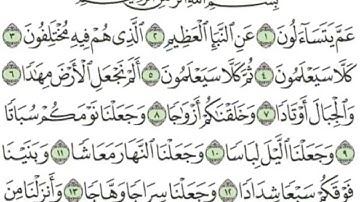 بِسْمِ اللَّهِ الرَّحْمَٰنِ الرَّحِيمِ
عَمَّ يَتَسَاءَلُونَ ١ عَنِ النَّبَإِ الْعَظِيمِ ٢ الَّذِي هُمْ فِيهِ مُخْتَلِفُونَ ٣
كَلَّا سَيَعْلَمُونَ ٤ ثُمَّ كَلَّا سَيَعْلَمُونَ ٥ أَلَمْ نَجْعَلِ الْأَرْضَ مِهَٰدًا ٦
وَالْجِبَالَ أَوْتَادًا ٧ وَخَلَقْنَٰكُمْ أَزْوَٰجًا ٨ وَجَعَلْنَا نَوْمَكُمْ سُبَاتًا
٩ وَجَعَلْنَا اللَّيْلَ لِبَاسًا ١٠ وَجَعَلْنَا النَّهَارَ مَعَاشًا ١١ وَبَنَيْنَا
فَوْقَكُمْ سَبْعًا شِدَادًا ١٢ وَجَعَلْنَا سِرَاجًا وَهَّاجًا ١٣ وَأَنزَلْنَا مِنَ